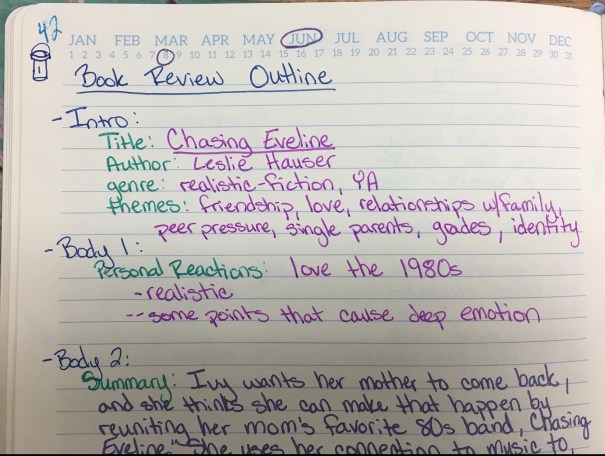 42
JAN FEB MAR APR MAY JUN JUL AUG SEP OCT NOV DEC
1 2 3 4 5 6 7 8 9 10 11 12 13 14 15 16 17 18 19 20 21 22 23 24 25 26 27 28 29 30 31
Book Review Outline
- Intro:
Title: Chasing Eveline
Author: Leslie Hauser
genre: realistic-fiction, YA
themes: friendship, love, relationships w/family,
peer pressure, single parents, grades, identity
- Body 1:
Personal Reactions: love the 1980s
- realistic
-- some points that cause deep emotion
- Body 2:
Summary: Ivy wants her mother to come back,
and she thinks she can make that happen by
reuniting her mom's favorite 80s band, Chasing
Eveline." She uses her connection to music to